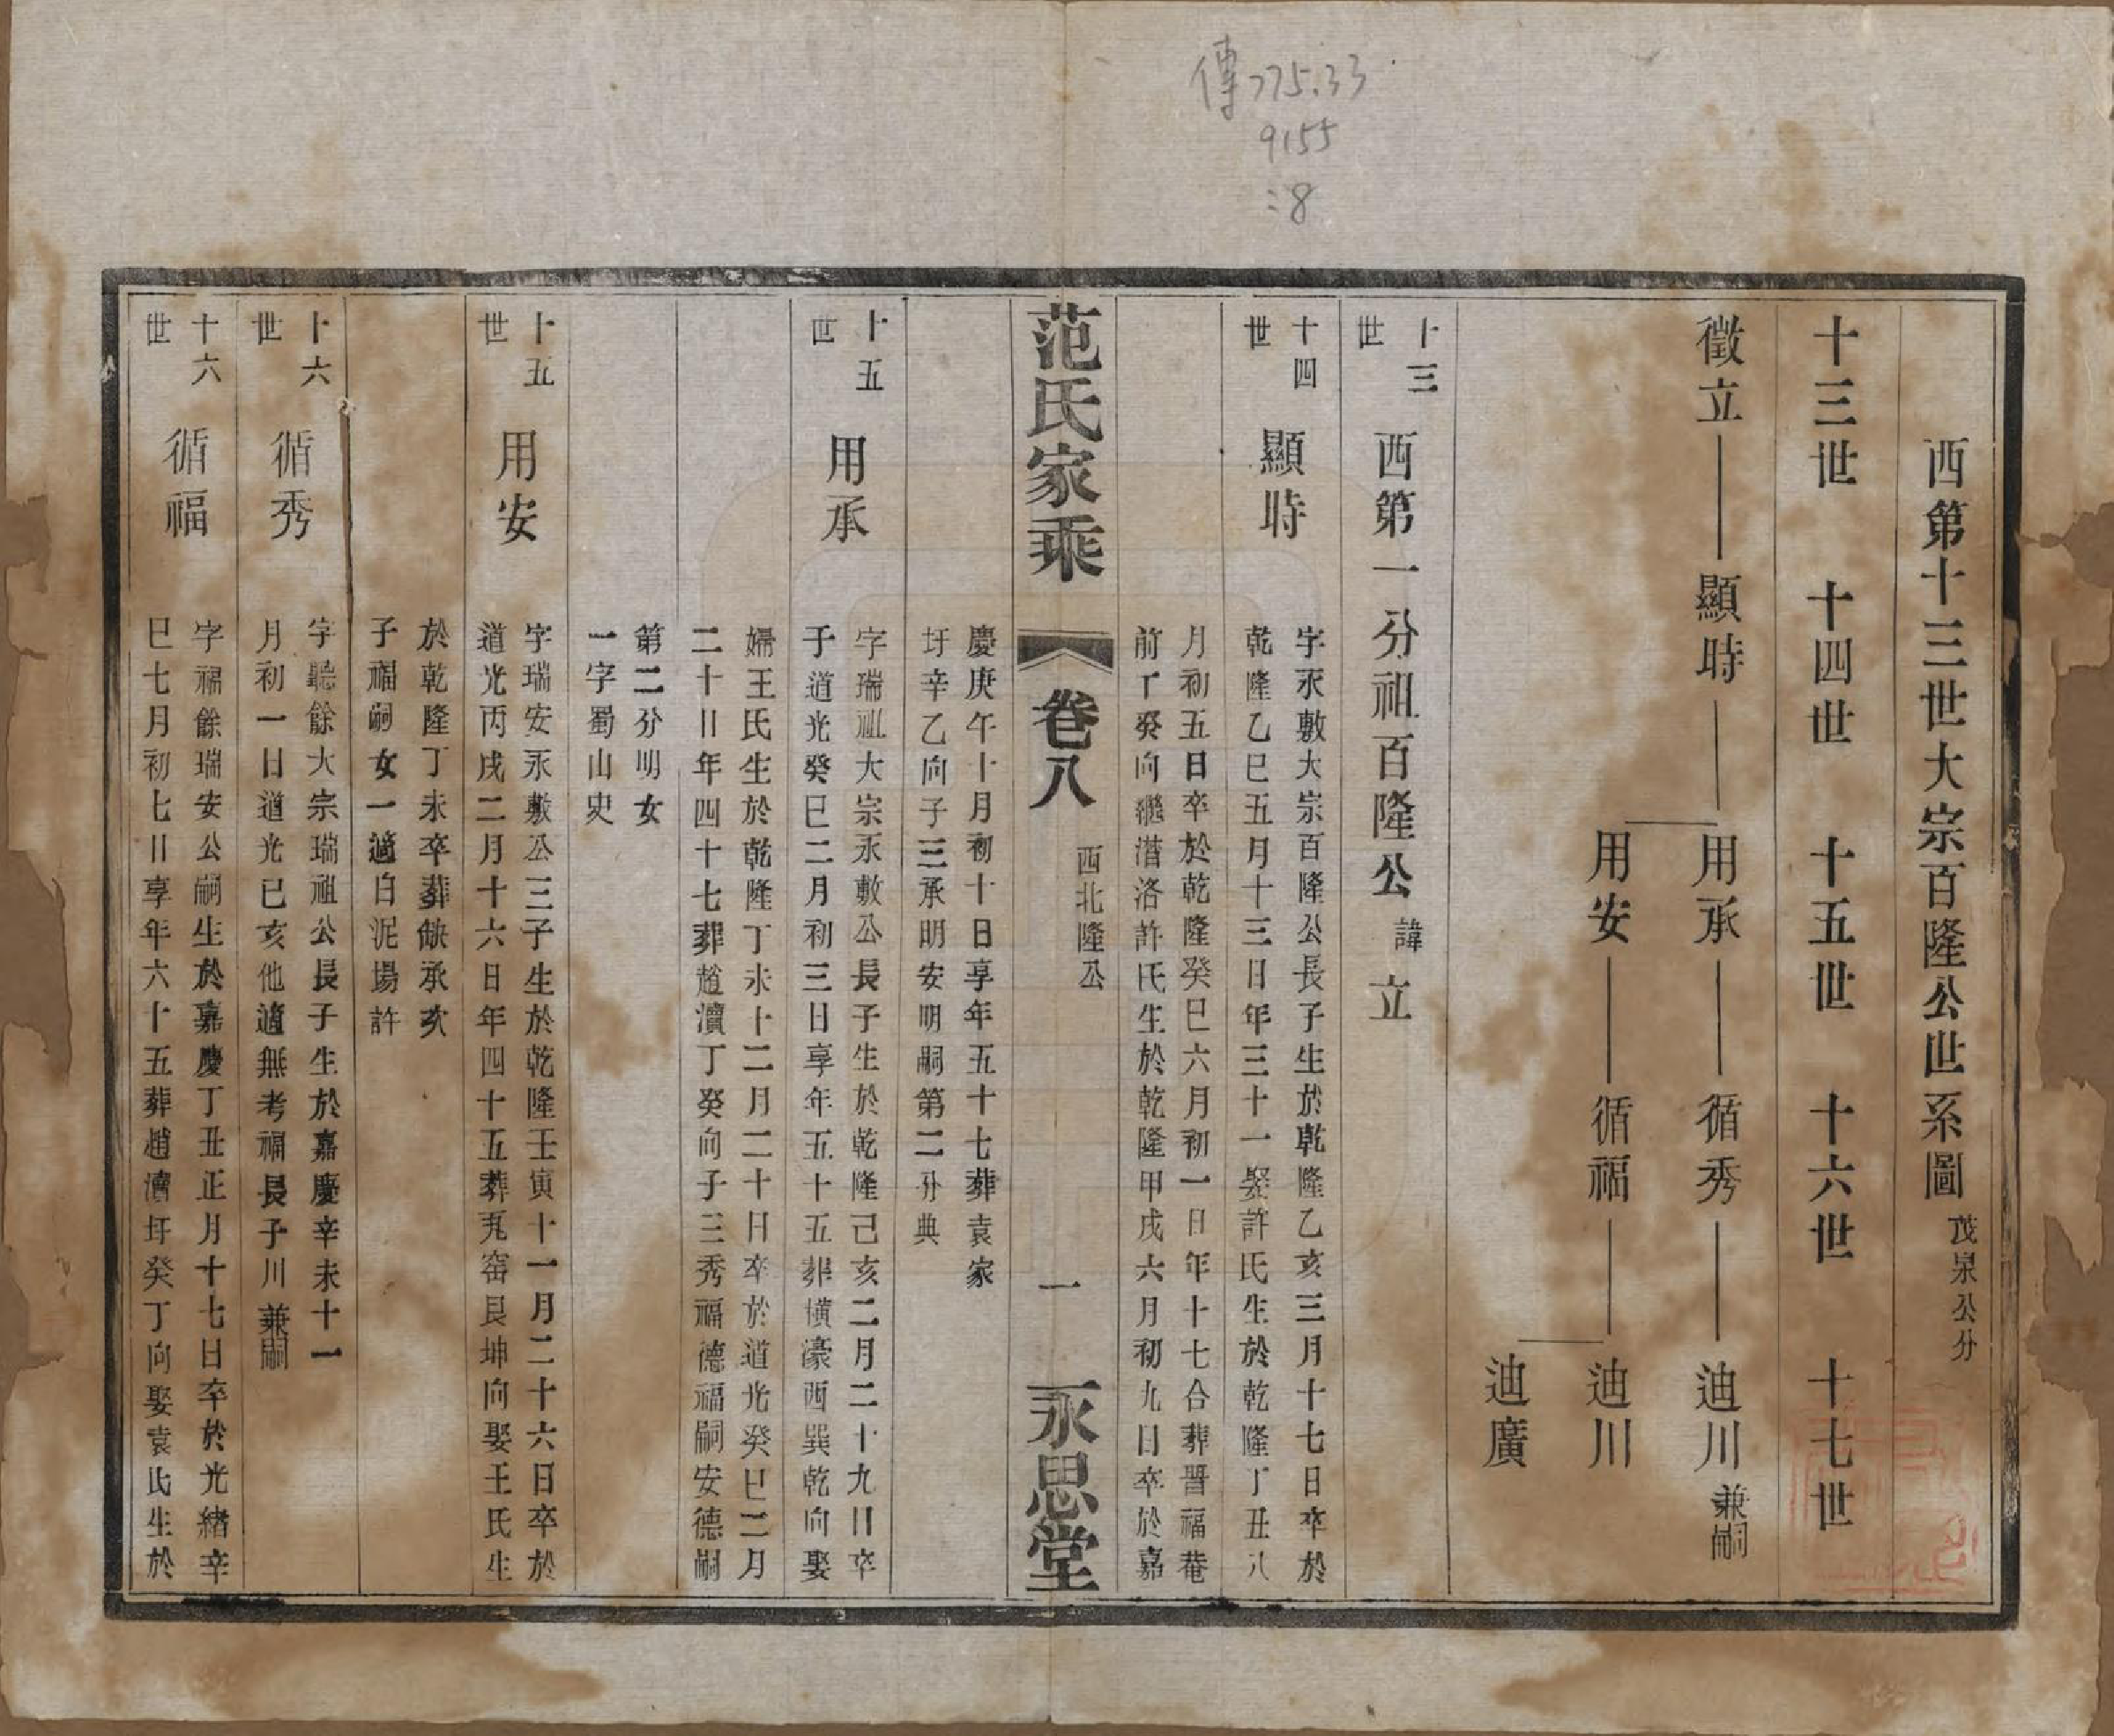 傳775.33
9155
:8
西第十三世大宗百隆公世系圖 茂泉公分
十三世 十四世 十五世 十六世 十七世
徵立 顯時 用承 循秀 迪川 兼嗣
用安 循福 迪川
迪廣
十三世 西第一分祖百隆公 諱立
十四世 顯時
字永敷大宗百隆公長子生於乾隆乙亥三月十七日卒於
乾隆乙巳五月十三日年三十一娶許氏生於乾隆丁丑八
月初五日卒於乾隆癸巳六月初一日年十七合葬晋福菴
前丁癸向繼潛洛許氏生於乾隆甲戌六月初九日卒於嘉
范氏家乘 卷八 西北隆公 一 永思堂
慶庚午十月初十日享年五十七葬袁家
圩辛乙向子三承明安明嗣第二分典
十五世 用承
字瑞祖大宗永敷公長子生於乾隆己亥二月二十九日卒
于道光癸巳二月初三日享年五十五葬橫豪西巽乾向娶
婦王氏生於乾隆丁未十二月二十日卒於道光癸巳二月
二十日年四十七葬趙瀆丁癸向子三秀福德福嗣安德嗣
第二分明女
一字蜀山史
十五世 用安
字瑞安永敷公三子生於乾隆壬寅十一月二十六日卒於
道光丙戌二月十六日年四十五葬瓦窑艮坤向娶王氏生
於乾隆丁未卒葬缺承亥
子福嗣女一適白泥場許
十六世 循秀
字聽餘大宗瑞祖公長子生於嘉慶辛未十一
月初一日道光已亥他適無考福長子川兼嗣
十六世 循福
字福餘瑞安公嗣生於嘉慶丁丑正月十七日卒於光緒辛
巳七月初七日享年六十五葬趙瀆圩癸丁向娶袁氏生於